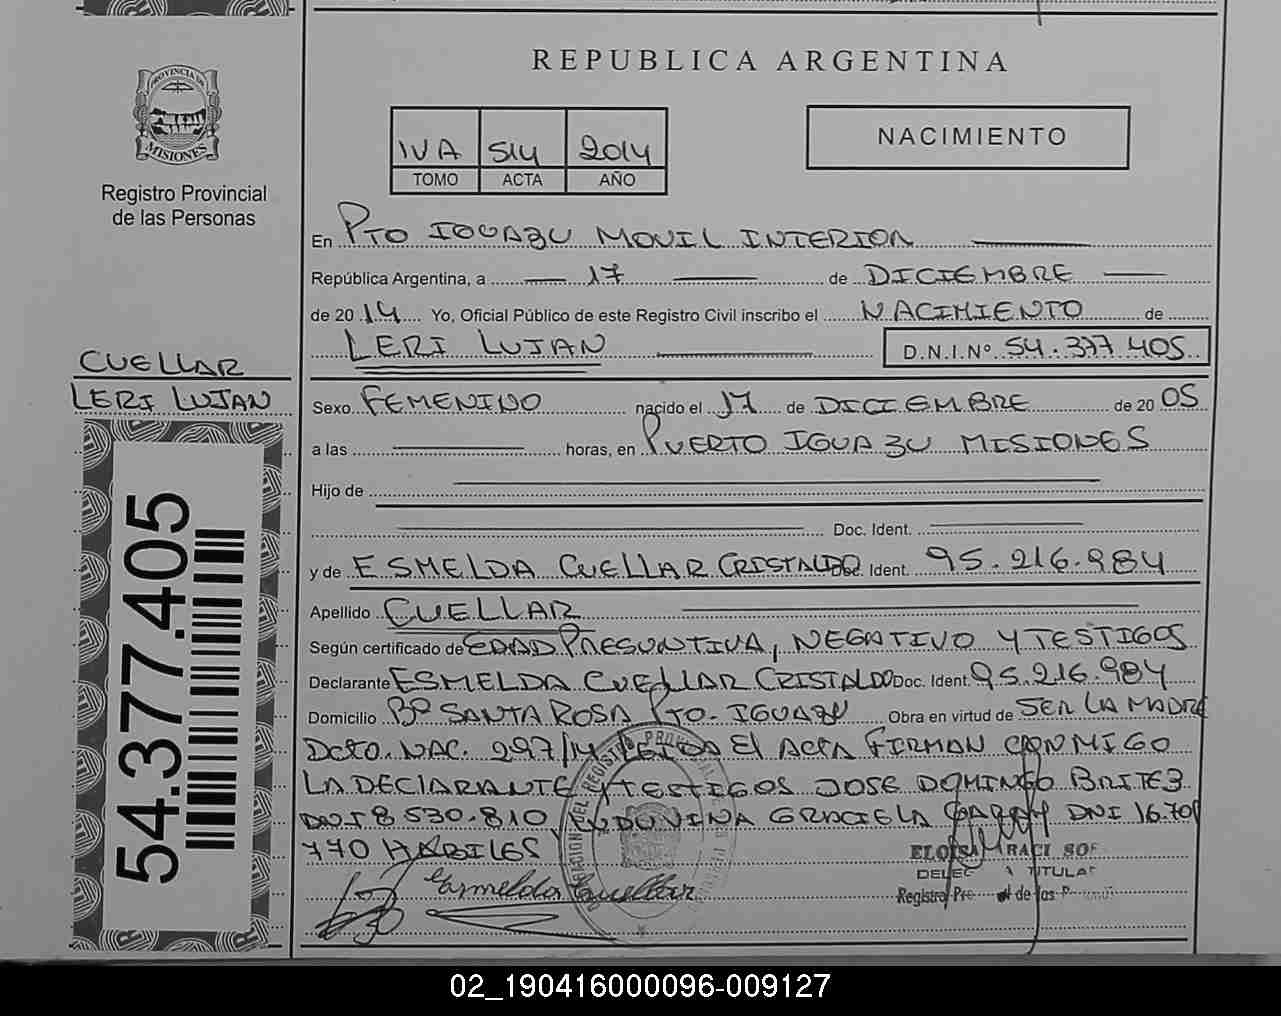 REPUBLICA ARGENTINA
PROVINCIA DE
MISIONES
Registro Provincial
de las Personas
IVA 514 2014
TOMO ACTA AÑO
NACIMIENTO
En PTO IGUAZU MOVIL INTERIOR
República Argentina, a 17 de DICIEMBRE
de 2014 Yo, Oficial Público de este Registro Civil inscribo el NACIMIENTO de
LERI LUJAN D.N.I.Nº 54.377.405
CUELLAR
LERI LUJAN
Sexo FEMENINO nacido el 17 de DICIEMBRE de 2005
a las horas, en PUERTO IGUAZU MISIONES
Hijo de
Doc. Ident.
y de ESMELDA CUELLAR CRISTALDO Doc. Ident. 95.216.984
Apellido CUELLAR
Según certificado de EDAD PRESUNTIVA, NEGATIVO Y TESTIGOS
Declarante ESMELDA CUELLAR CRISTALDO Doc. Ident. 95.216.984
Domicilio Bº SANTA ROSA PTO. IGUAZU Obra en virtud de SER LA MADRE
DCTO. NAC. 297/14 LEIDA El ACTA FIRMAN CONMIGO
LA DEClARANTE Y TESTIGOS JOSE DOMINGO BRITEZ
DNI 8.530.810, LUDUVINA GRACIELA GARAY DNI 16.701
770 HABILES
Esmelda Cuellar
DEL REGISTRO PROVINCIAL DE LAS
ELOISA
TITULAR
54.377.405
02_190416000096-009127